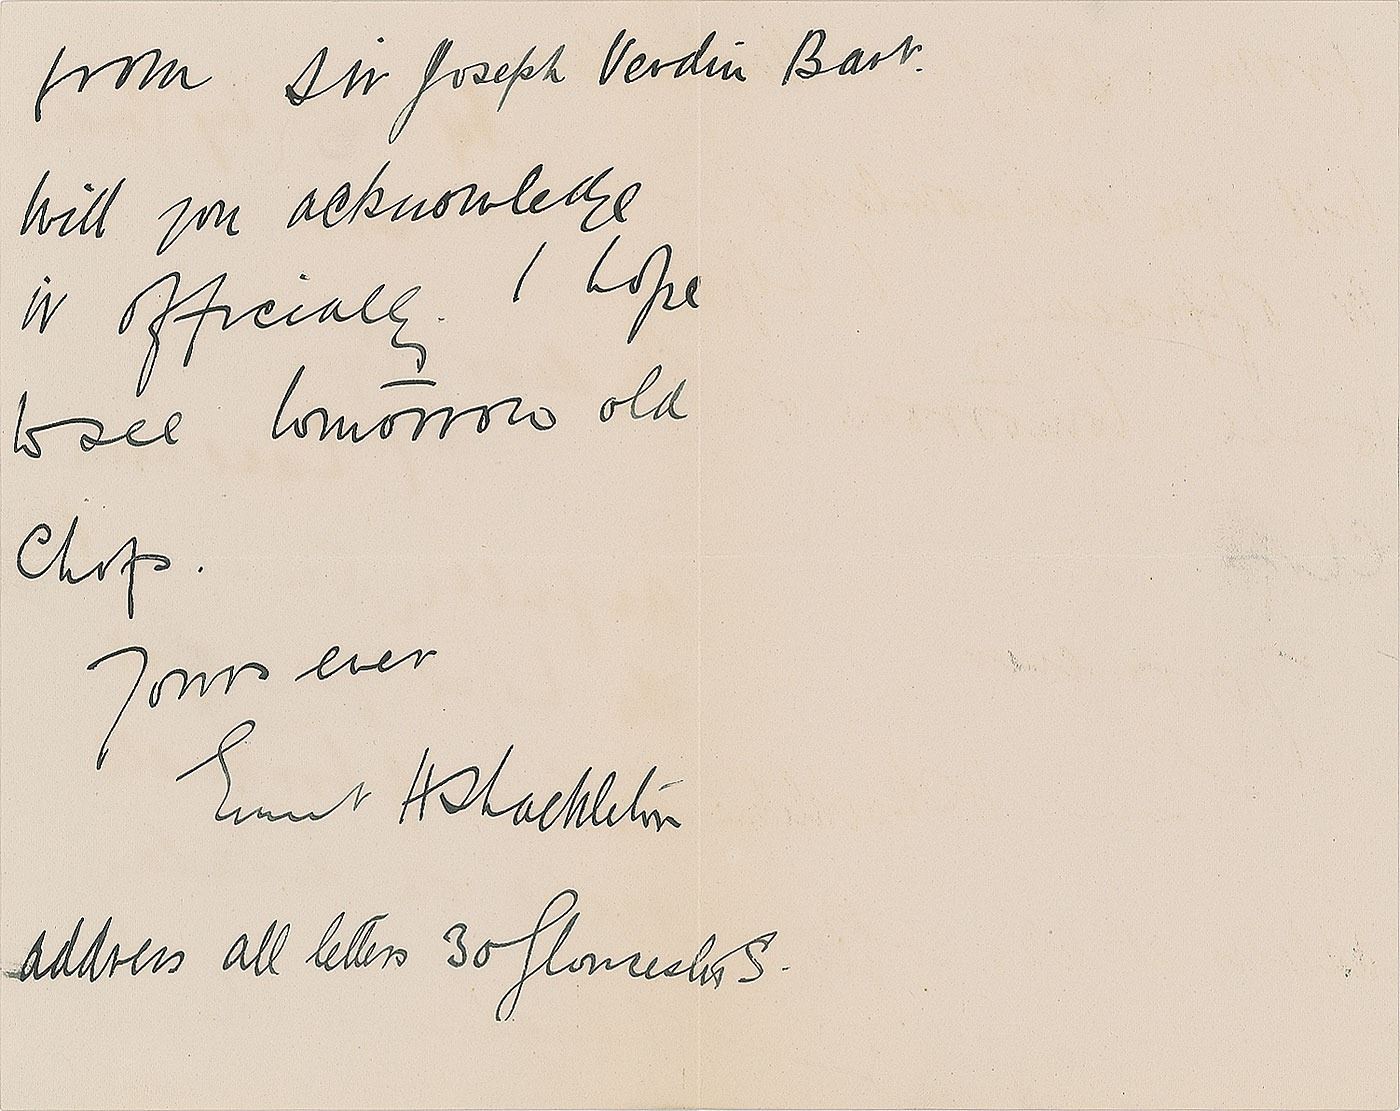 from Sir Joseph Verdin Bart.
Will you acknowledge
it officially. I hope
to see tomorrow old
Chops.
Yours ever
Ernest H Shackleton
address all letters 30 Gloucester S.